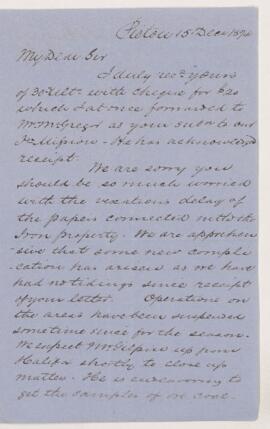 Pictou 15 Dec 1874
My Dear Sir
I duly recd yours
of 30 Ult. with cheque for £20
which I at once forwarded to
Mr McGregor as your subn to our
Mission - He has acknowledged
receipt.
We are sorry you
should be so much worried
with the vexatious delay of
the papers connected with the
Iron property. We are apprehen
-sive that some new compli
-cation has arisen as we have
had no tidings since receipt
of your letter. Operations on
the areas have been suspended
sometime since for the season.
We expect Mr Gilpin up from
Halifax shortly to close up
matters. He is endeavoring to
get the samples of ore &c.